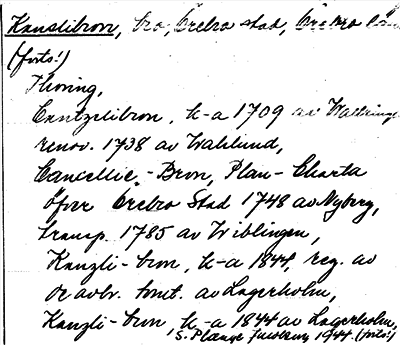 Kanslibron, bro, Örebro stad, Örebro län
(forts.)
Thoring,
Cantzelibron, k-a 1709 av
renov. 1738 av Wahlund,
Cancellie-Bron, Plan-Charta
öfver Örebro Stad 1748 av Nyberg,
transp. 1785 av Wiblingen,
Kanzli-bron, k-a 1844, reg. av
av Lagerholm,
Kanzli-bron, k-a 1844 av Lagerholm,
S. 1944 (forts.)